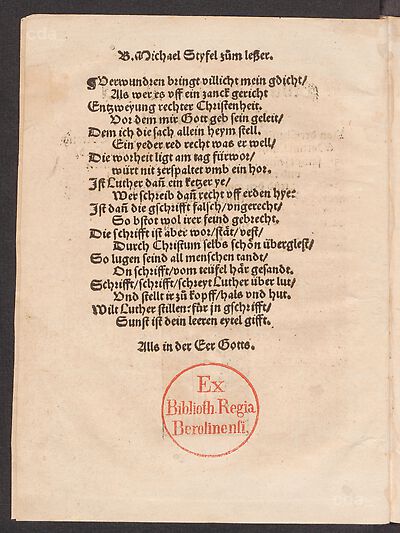 B. Michael Styfel zům leßer.
Verwundren bringt villicht mein gdicht/
Als wer es vff ein zanck gericht
Entzweyung rechter Christenheit.
Vor dem mir Gott geb sein geleit/
Dem ich die sach allein heym stell.
Ein yeder red recht was er well/
Die worheit ligt am tag fürwor/
würt nit zerspaltet vmb ein hor.
Ist Luther dañ ein ketzer ye/
Wer schreib dañ recht vff erden hye?
Ist dañ die gschrifft falsch/vngerecht/
So bstot wol irer feind gebrecht.
Die schrifft ist aber wor/stät/vest/
Durch Christum selbs schön überglest/
So lugen seind all menschen tandt/
On schrifft/vom teüfel här gesandt.
Schrifft/schrifft/schreyt Luther über lut/
Vnd stellt ir zů kopff/hals vnd hut.
Wilt Luther stillen: für jn gschrifft/
Sunst ist dein leeren eytel gifft.
Alls in der Eer Gotts.
Ex
Biblioth. Regia
Berolinensi.
cda
cda